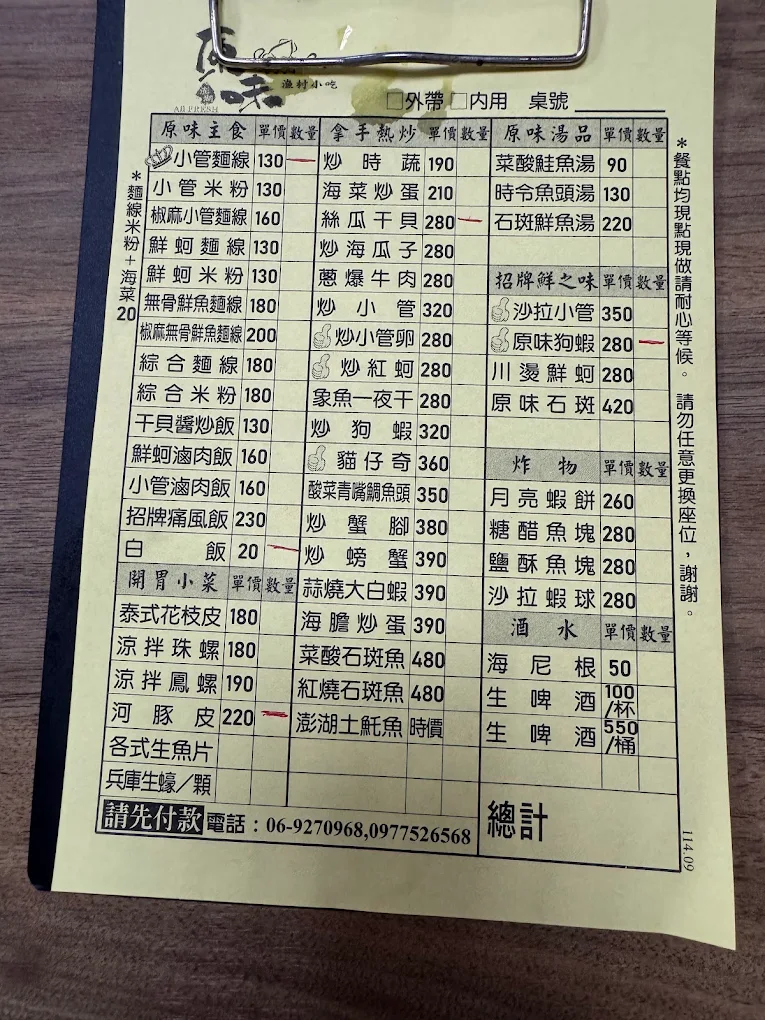 原味
漁村小吃
All FRESH
□外帶 □內用 桌號
原味主食 單價 數量
小管麵線 130
小管米粉 130
椒麻小管麵線 160
鮮蚵麵線 130
鮮蚵米粉 130
無骨鮮魚麵線 180
椒麻無骨鮮魚麵線 200
綜合麵線 180
綜合米粉 180
干貝醬炒飯 130
鮮蚵滷肉飯 160
小管滷肉飯 160
招牌痛風飯 230
白飯 20
開胃小菜 單價 數量
泰式花枝皮 180
涼拌珠螺 180
涼拌鳳螺 190
河豚皮 220
各式生魚片
兵庫生蠔／顆
＊麵線米粉+海菜20
拿手熱炒 單價 數量
炒時蔬 190
海菜炒蛋 210
絲瓜干貝 280
炒海瓜子 280
蔥爆牛肉 280
炒小管 320
炒小管卵 280
炒紅蚵 280
象魚一夜干 280
炒狗蝦 320
貓仔奇 360
酸菜青嘴鯛魚頭 350
炒蟹腳 380
炒螃蟹 390
蒜燒大白蝦 390
海膽炒蛋 390
菜酸石斑魚 480
紅燒石斑魚 480
澎湖土魠魚 時價
原味湯品 單價 數量
菜酸鮭魚湯 90
時令魚頭湯 130
石斑鮮魚湯 220
招牌鮮之味 單價 數量
沙拉小管 350
原味狗蝦 280
川燙鮮蚵 280
原味石斑 420
炸物 單價 數量
月亮蝦餅 260
糖醋魚塊 280
鹽酥魚塊 280
沙拉蝦球 280
酒水 單價 數量
海尼根 50
生啤酒 100/杯
生啤酒 550/桶
＊餐點均現點現做請耐心等候。請勿任意更換座位，謝謝。
請先付款 電話：06-9270968,0977526568
總計
114.09